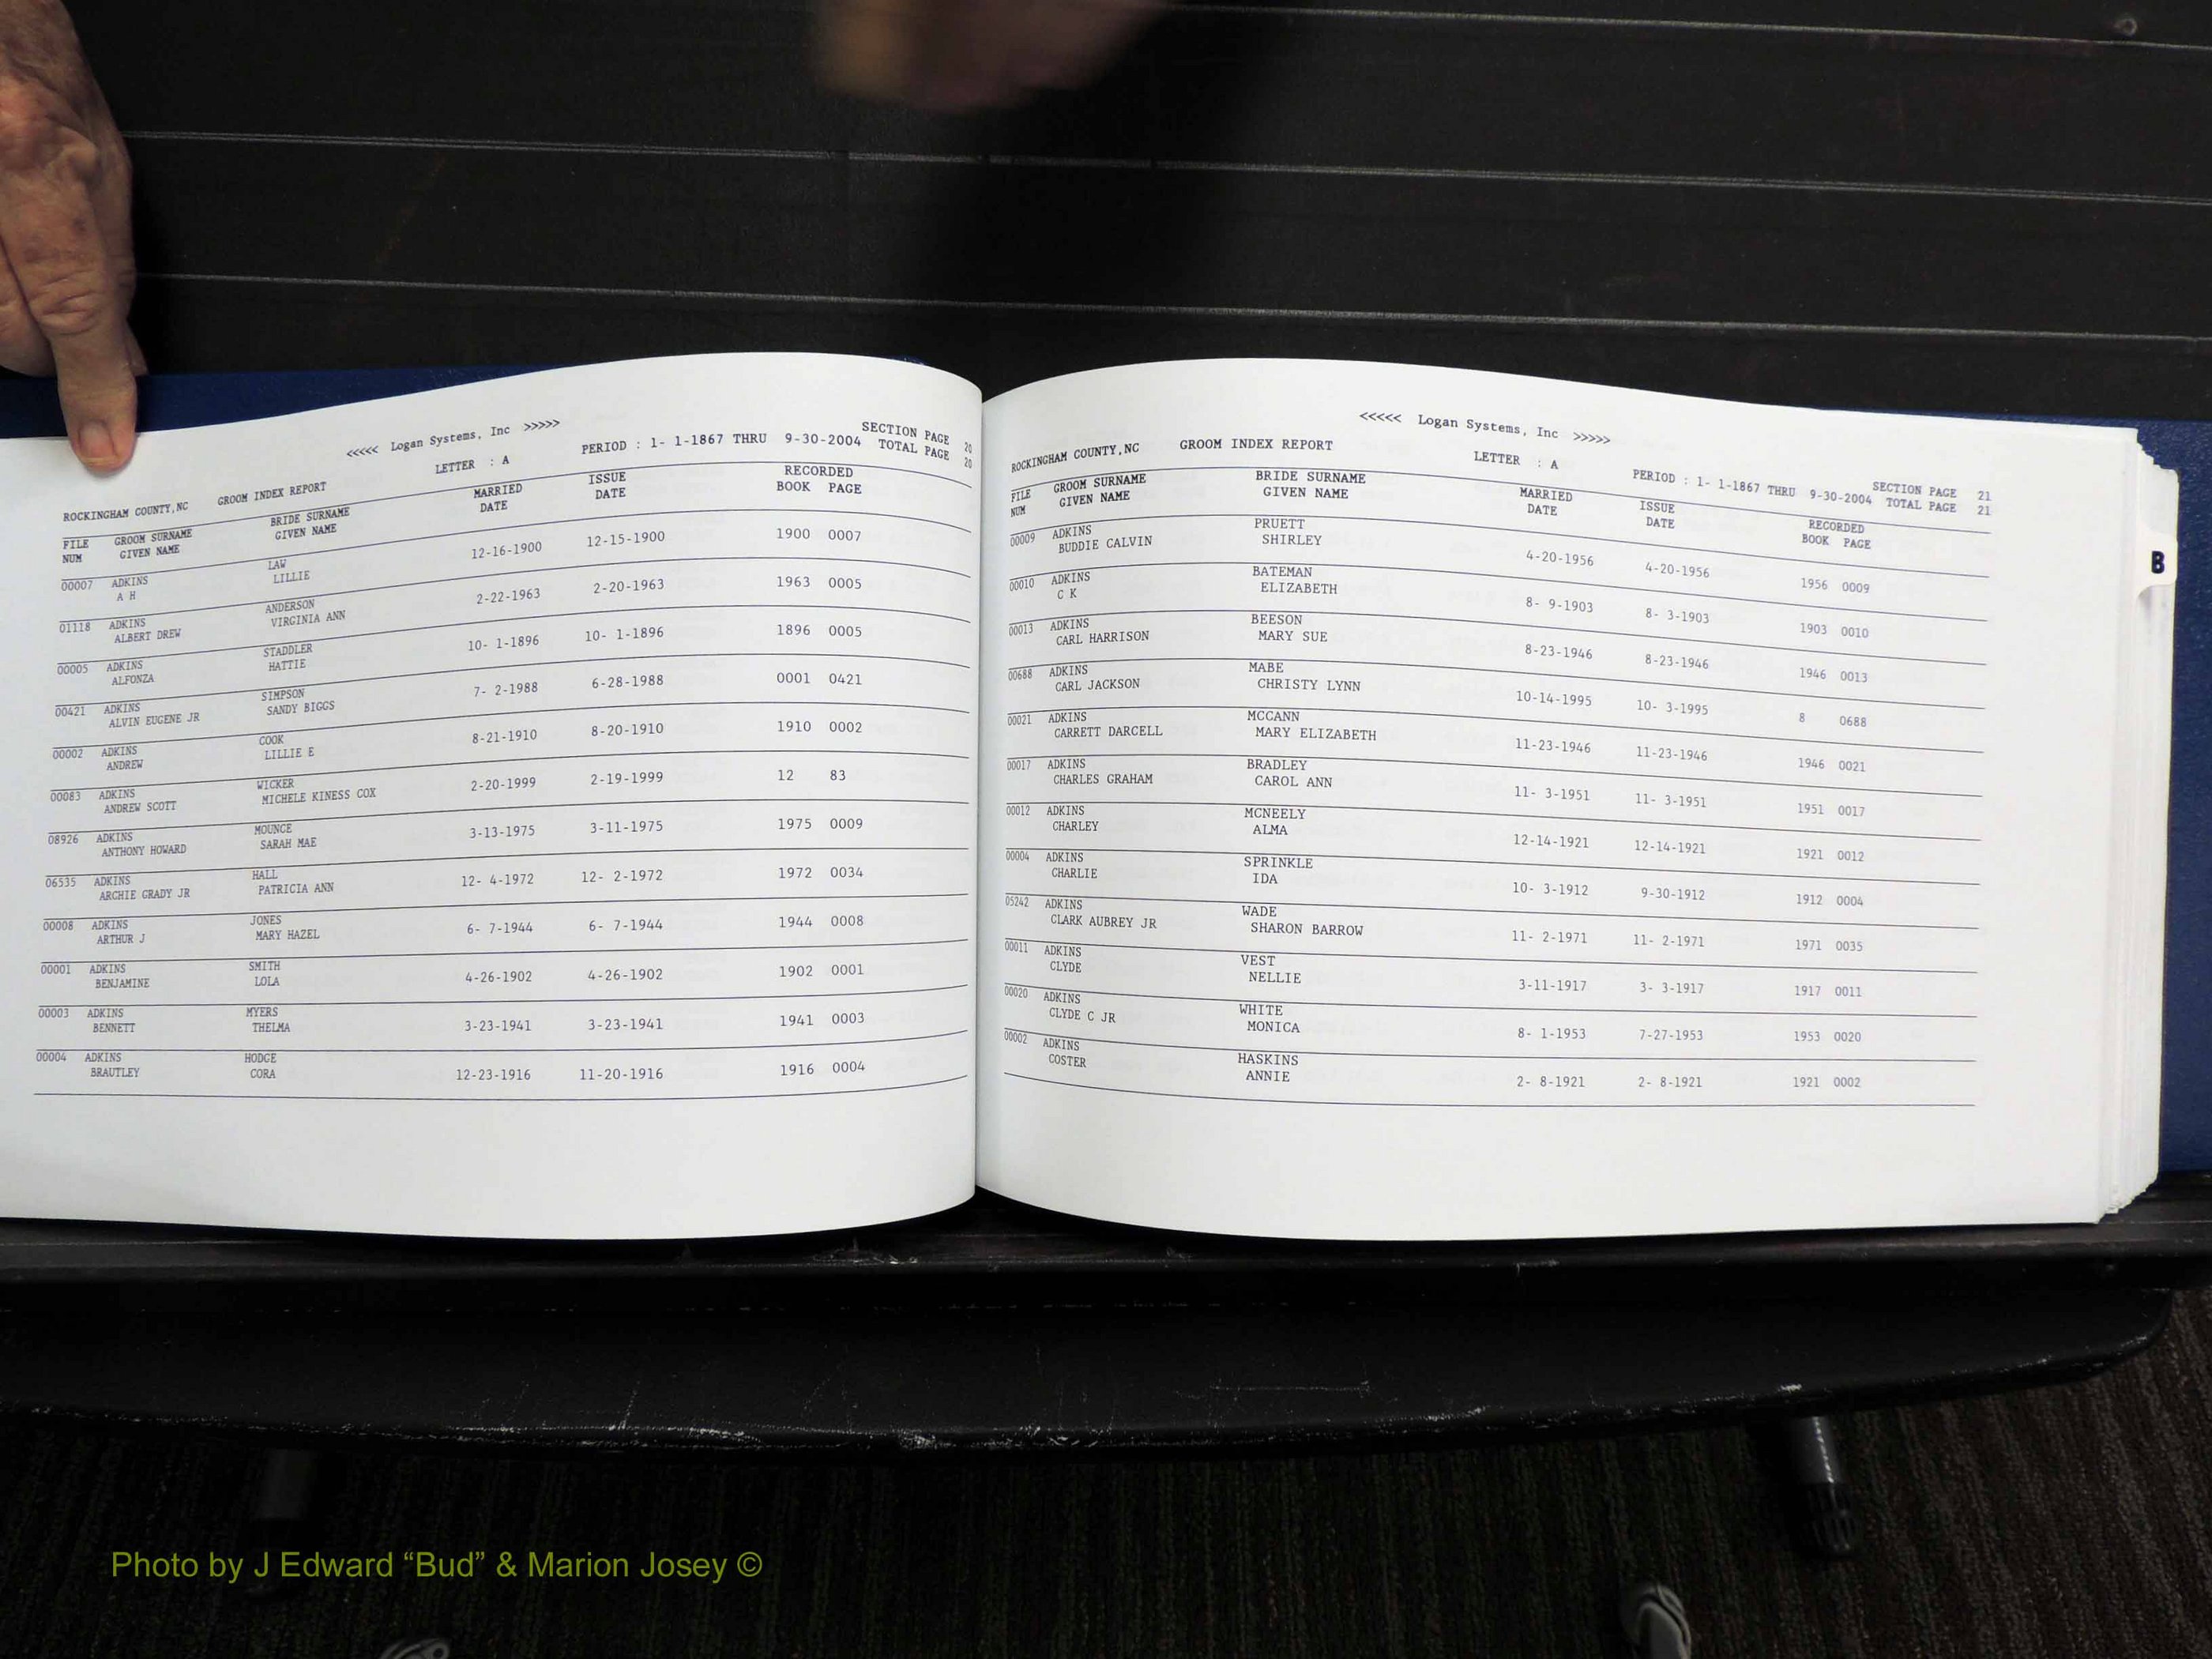 <<<<< Logan Systems, Inc >>>>>
SECTION PAGE 20
ROCKINGHAM COUNTY,NC GROOM INDEX REPORT LETTER : A PERIOD : 1- 1-1867 THRU 9-30-2004 TOTAL PAGE 20
FILE GROOM SURNAME BRIDE SURNAME MARRIED ISSUE RECORDED
NUM GIVEN NAME GIVEN NAME DATE DATE BOOK PAGE
00007 ADKINS LAW 12-16-1900 12-15-1900 1900 0007
A H LILLIE
01118 ADKINS ANDERSON 2-22-1963 2-20-1963 1963 0005
ALBERT DREW VIRGINIA ANN
00005 ADKINS STADDLER 10- 1-1896 10- 1-1896 1896 0005
ALFONZA HATTIE
00421 ADKINS SIMPSON 7- 2-1988 6-28-1988 0001 0421
ALVIN EUGENE JR SANDY BIGGS
00002 ADKINS COOK 8-21-1910 8-20-1910 1910 0002
ANDREW LILLIE E
00083 ADKINS WICKER 2-20-1999 2-19-1999 12 83
ANDREW SCOTT MICHELE KINESS COX
08926 ADKINS MOUNCE 3-13-1975 3-11-1975 1975 0009
ANTHONY HOWARD SARAH MAE
06535 ADKINS HALL 12- 4-1972 12- 2-1972 1972 0034
ARCHIE GRADY JR PATRICIA ANN
00008 ADKINS JONES 6- 7-1944 6- 7-1944 1944 0008
ARTHUR J MARY HAZEL
00001 ADKINS SMITH 4-26-1902 4-26-1902 1902 0001
BENJAMINE LOLA
00003 ADKINS MYERS 3-23-1941 3-23-1941 1941 0003
BENNETT THELMA
00004 ADKINS HODGE 12-23-1916 11-20-1916 1916 0004
BRAUTLEY CORA
<<<<< Logan Systems, Inc >>>>>
SECTION PAGE 21
ROCKINGHAM COUNTY,NC GROOM INDEX REPORT LETTER : A PERIOD : 1- 1-1867 THRU 9-30-2004 TOTAL PAGE 21
FILE GROOM SURNAME BRIDE SURNAME MARRIED ISSUE RECORDED
NUM GIVEN NAME GIVEN NAME DATE DATE BOOK PAGE
00009 ADKINS PRUETT 4-20-1956 4-20-1956 1956 0009
BUDDIE CALVIN SHIRLEY
00010 ADKINS BATEMAN 8- 9-1903 8- 3-1903 1903 0010
C K ELIZABETH
00013 ADKINS BEESON 8-23-1946 8-23-1946 1946 0013
CARL HARRISON MARY SUE
00688 ADKINS MABE 10-14-1995 10- 3-1995 8 0688
CARL JACKSON CHRISTY LYNN
00021 ADKINS MCCANN 11-23-1946 11-23-1946 1946 0021
CARRETT DARCELL MARY ELIZABETH
00017 ADKINS BRADLEY 11- 3-1951 11- 3-1951 1951 0017
CHARLES GRAHAM CAROL ANN
00012 ADKINS MCNEELY 12-14-1921 12-14-1921 1921 0012
CHARLEY ALMA
00004 ADKINS SPRINKLE 10- 3-1912 9-30-1912 1912 0004
CHARLIE IDA
05242 ADKINS WADE 11- 2-1971 11- 2-1971 1971 0035
CLARK AUBREY JR SHARON BARROW
00011 ADKINS VEST 3-11-1917 3- 3-1917 1917 0011
CLYDE NELLIE
00020 ADKINS WHITE 8- 1-1953 7-27-1953 1953 0020
CLYDE C JR MONICA
00002 ADKINS HASKINS 2- 8-1921 2- 8-1921 1921 0002
COSTER ANNIE
B
Photo by J Edward “Bud” & Marion Josey ©